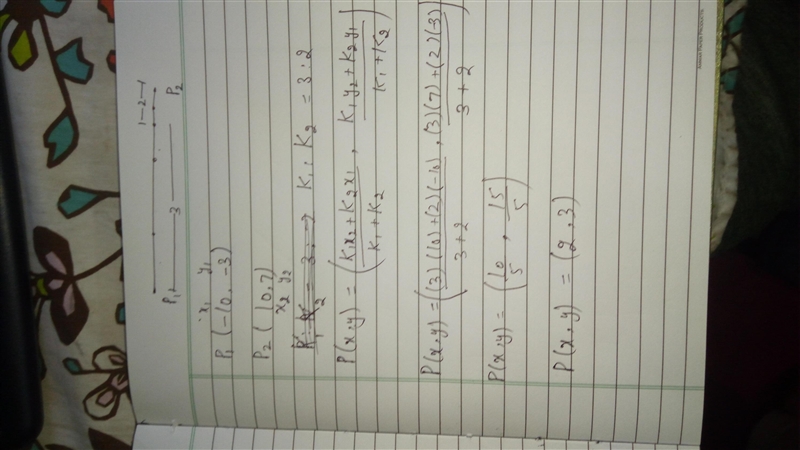 1—2—1
P₁ 3 P₂
x₁ y₁
P₁ (-10, -3)
P₂ (10, 7)
x₂ y₂
⇒ K₁ : K₂ = 3:2
P(x,y) = (K₁x₂+K₂x₁ / K₁+K₂ , K₁y₂+K₂y₁ / K₁+K₂)
P(x,y) = ((3)(10)+(2)(-10) / 3+2 , (3)(7)+(2)(3) / 3+2)
P(x,y) = (10/5 , 15/5)
P(x,y) = (2,3)